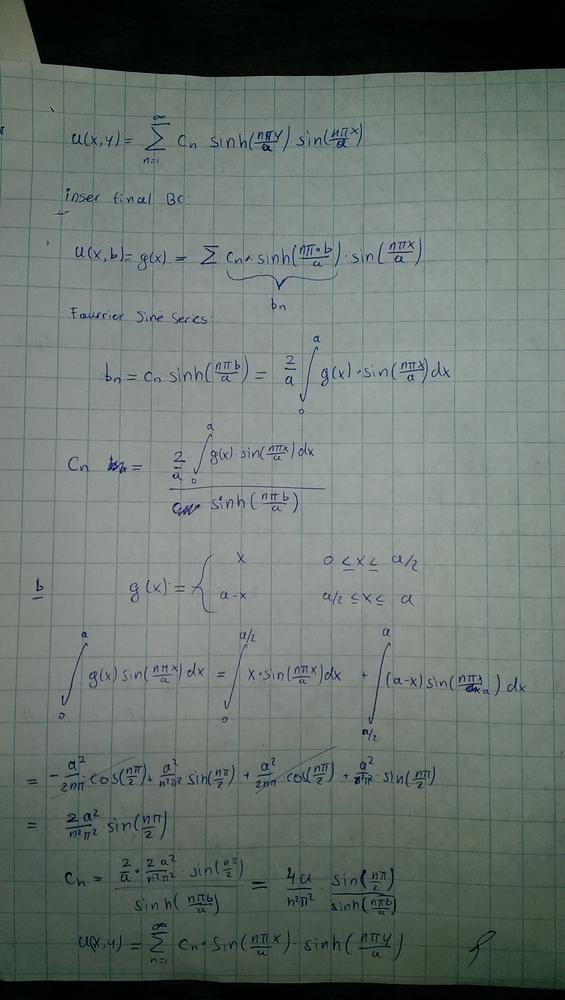 u(x,y) = ∑_{n=1}^{∞} c_n sinh(nπy/a) sin(nπx/a)
inser final BC:
u(x,b) = g(x) = ∑ c_n · sinh(nπ·b/a) · sin(nπx/a)
b_n
Fourrier Sine Series:
b_n = c_n · sinh(nπb/a) = 2/a ∫_0^a g(x) · sin(nπx/a) dx
C_n = (2/a ∫_0^a g(x) · sin(nπx/a) dx) / sinh(nπb/a)
b g(x) = { x 0 ≤ x ≤ a/2
a-x a/2 ≤ x ≤ a
∫_0^a g(x) sin(nπx/a) dx = ∫_0^{a/2} x · sin(nπx/a) dx + ∫_{a/2}^a (a-x) sin(nπx/a) dx
= - a²/2nπ · cos(nπ/2) + a²/n²π² sin(nπ/2) + a²/2nπ cos(nπ/2) + a²/n²π² · sin(nπ/2)
= 2a²/n²π² sin(nπ/2)
C_n = (2/a · 2a²/n²π² · sin(nπ/2)) / sinh(nπb/a) = 4a/n²π² · sin(nπ/2)/sinh(nπb/a)
u(x,y) = ∑_{n=1}^{∞} C_n · sin(nπx/a) · sinh(nπy/a)